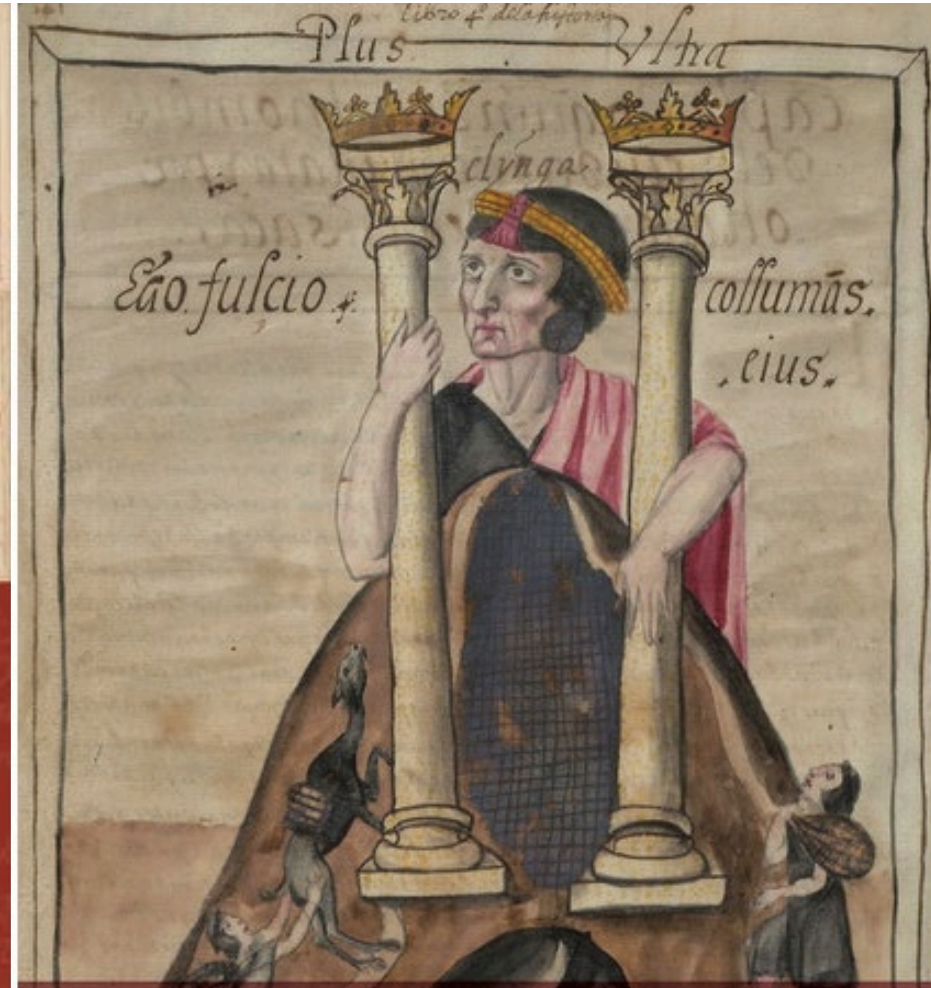 Libro 4° de la historia
Plus Ultra
el ynga
Ego fulcio
collumãs.
eius.